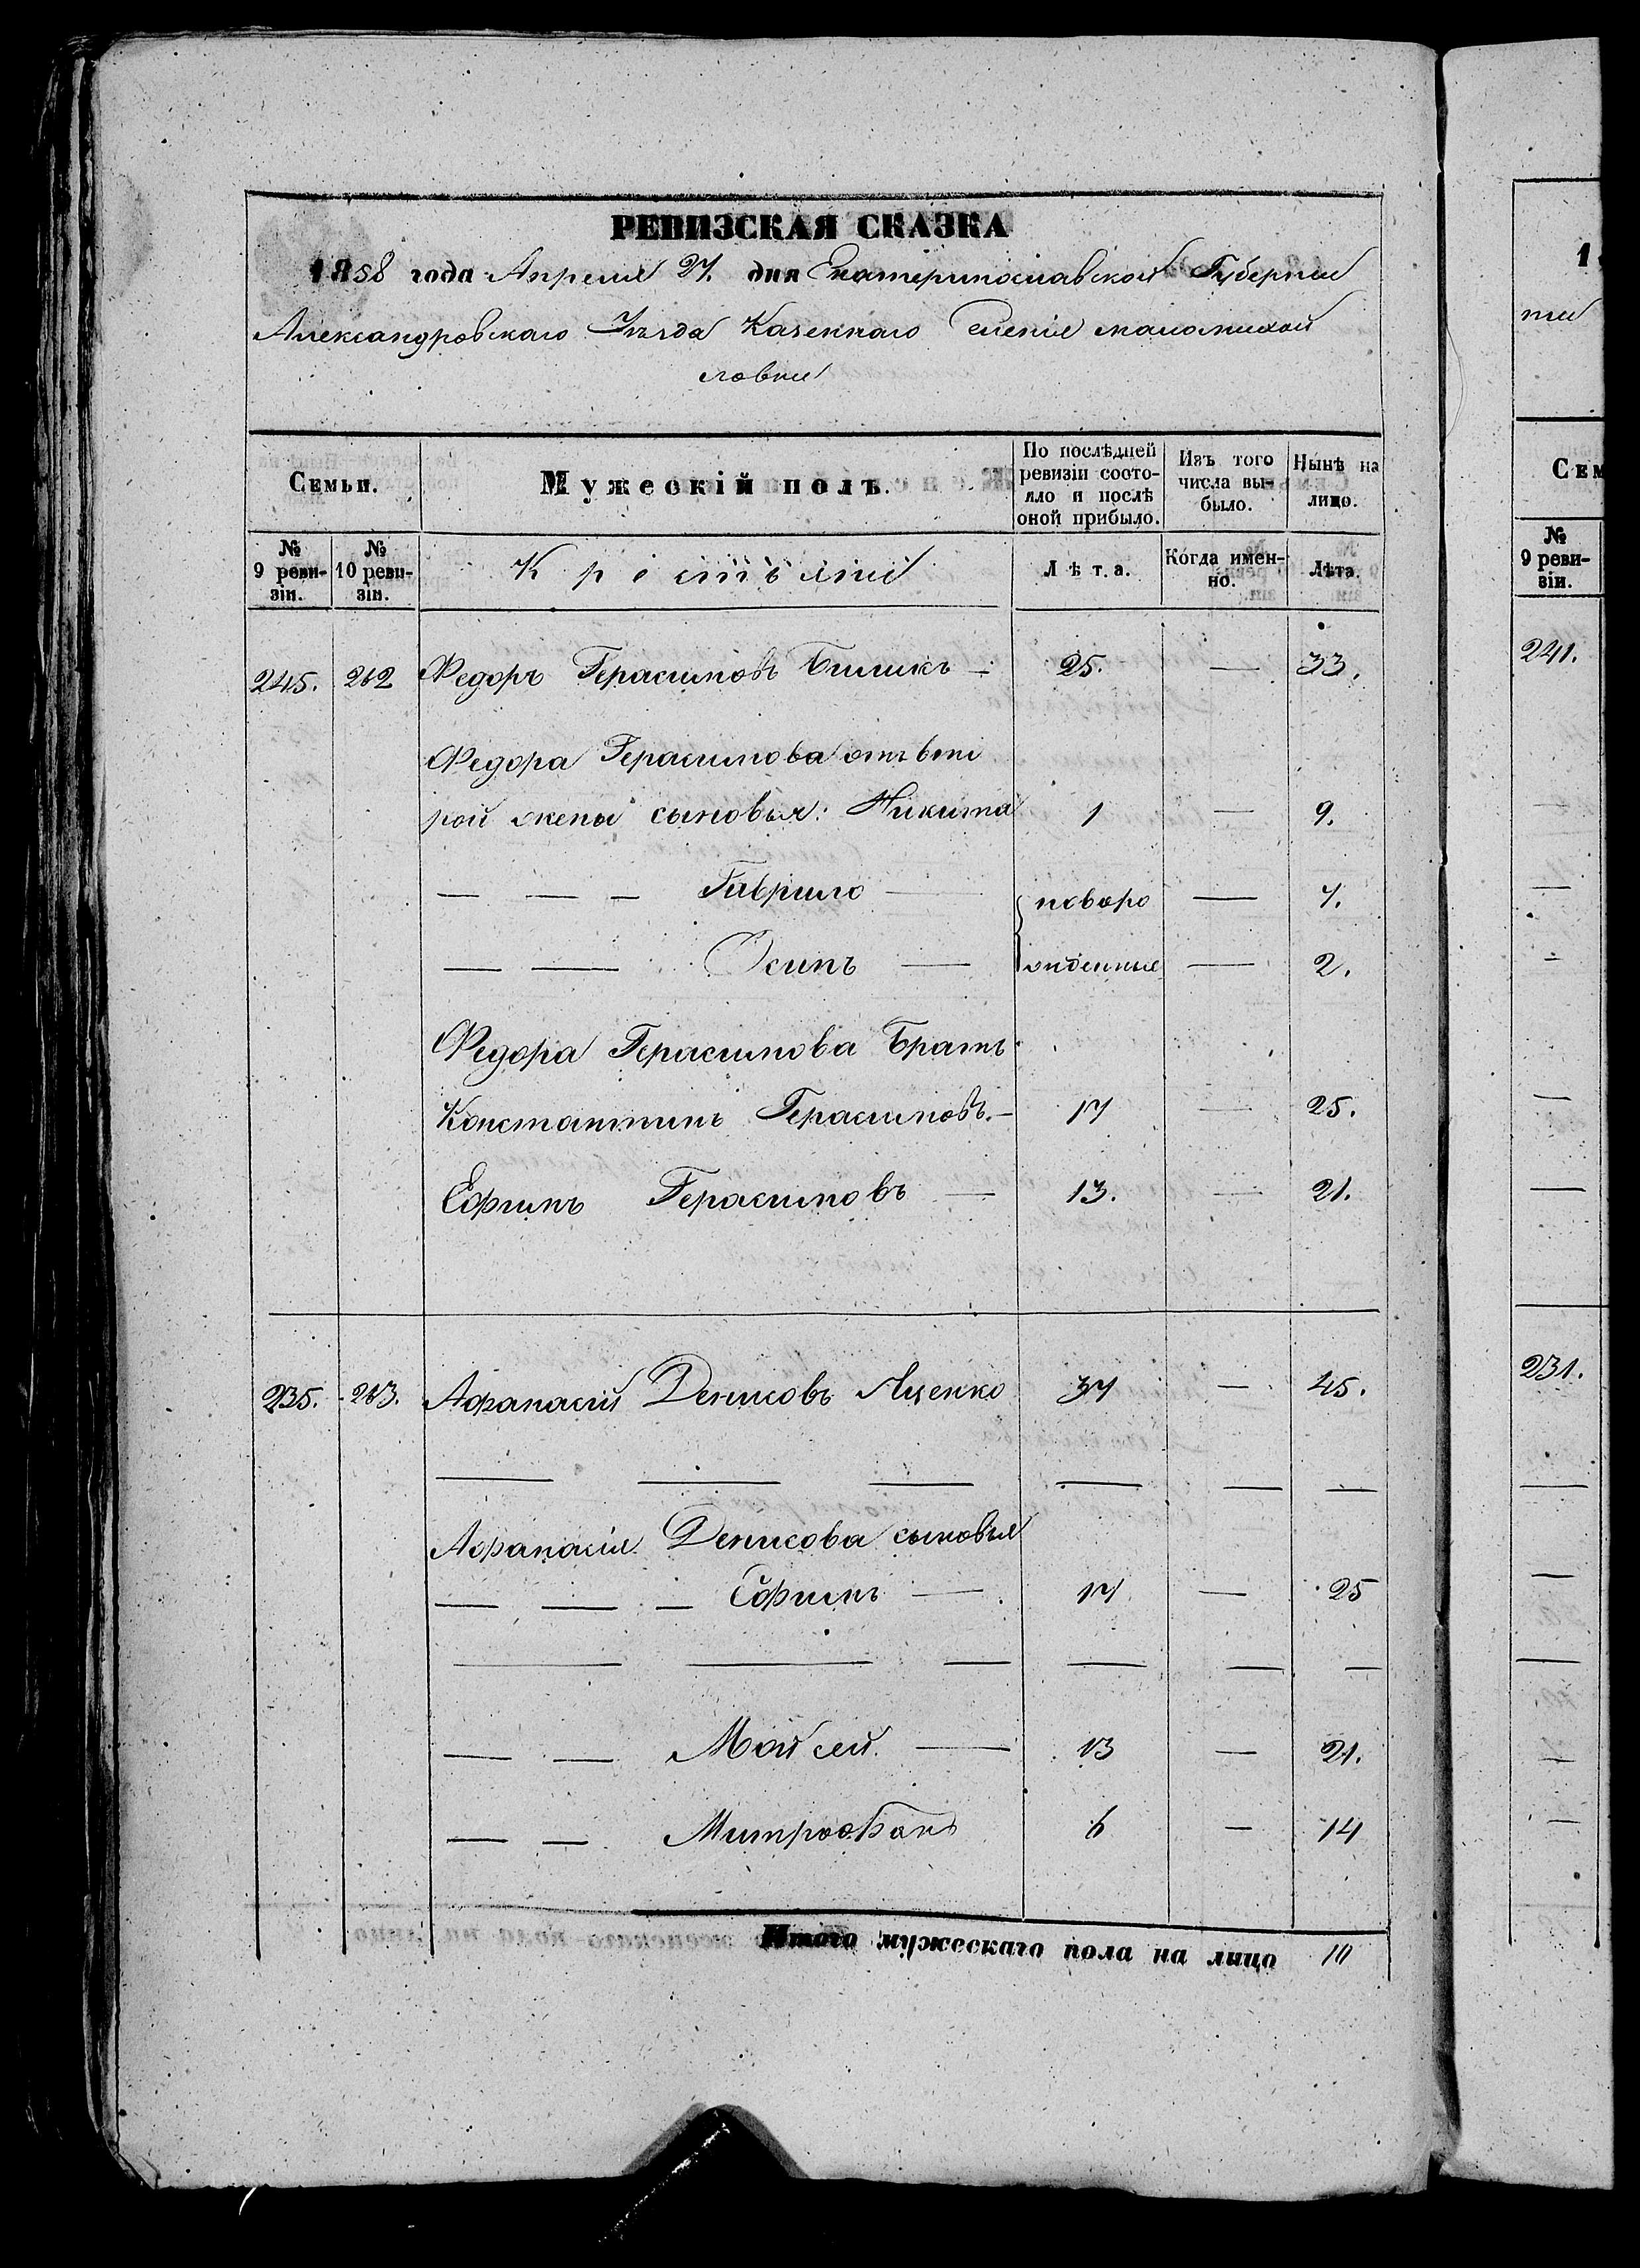 РЕВИЗСКАЯ СКАЗКА
1858 года Апреля 27. дня Екатеринославской Губерніи
Александровскаго Уѣзда Казеннаго Селенія маломихай
ловки
Семьи. Мужескій полъ. По послѣдней ревизіи состояло и послѣ оной прибыло. Изъ того числа выбыло. Нынѣ на лицо.
№ 9 ревизіи. № 10 ревизіи. Крестьяне Лѣта. Когда именно. Лѣта.
245. 262 Федоръ Герасимовъ Биликъ — 25. — 33.
Федора Герасимова отъ вто
рой жены сыновья: Никита 1 — 9.
— — — Гаврило — новоро — 7.
— — Осипъ — жденные — 2.
Федора Герасимова Братъ
Константинъ Герасимовъ. — 17 — 25.
Ефимъ Герасимовъ — 13. — 21.
235. 263. Афанасій Денисовъ Яценко 37 — 45.
— — — — — —
Афанасія Денисова сыновья
— — — Ефимъ — 17 — 25
— — — — — —
— — Мойсей. — 13 — 21.
— — Митрофанъ 6 — 14
Итого мужескаго пола на лицо 10
1
ніи
Сем
№ 9 ревизіи.
241.
231.